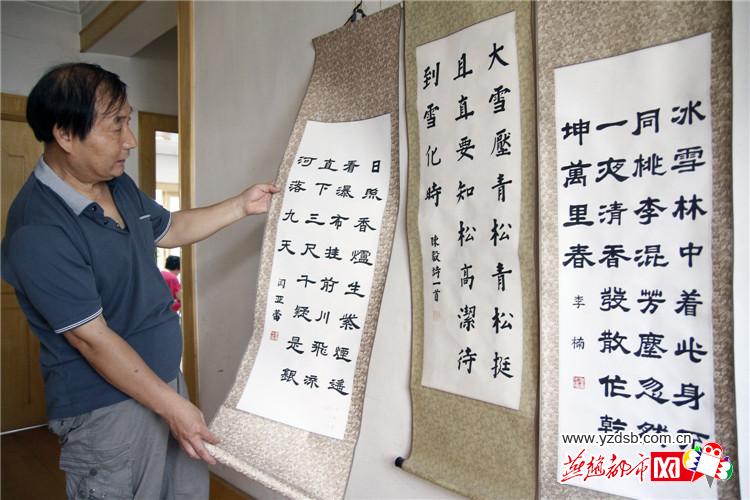 日照香爐生紫煙遙
看瀑布挂前川飛流
直下三尺千疑是銀
河落九天
闫亚蕾
大雪壓青松青松挺
且直要知松高潔待
到雪化時
陳毅诗一首
冰雪林中着此身不
同桃李混芳塵忽然
一夜清香發散作乾
坤萬里春
李楠
www.yzdsb.com.cn
燕趙都市网